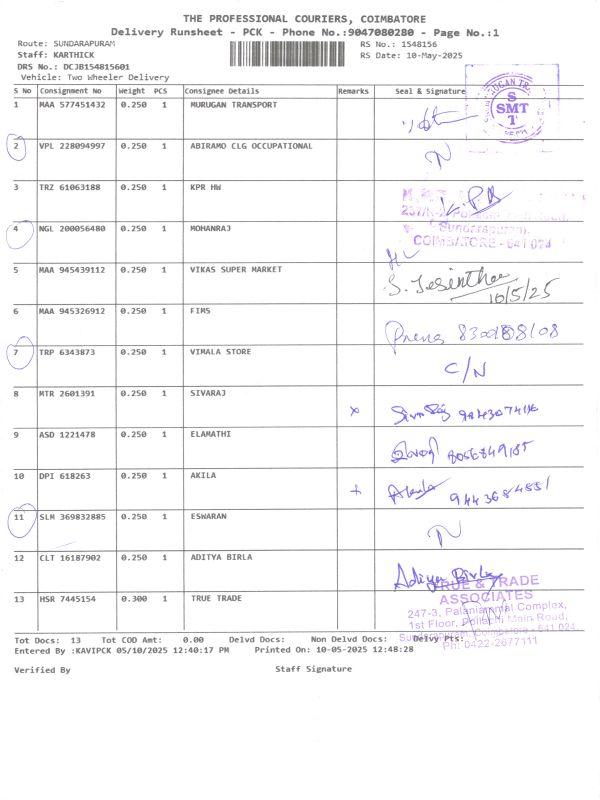 THE PROFESSIONAL COURIERS, COIMBATORE
Delivery Runsheet - PCK - Phone No.:9047080280 - Page No.:1
Route: SUNDARAPURAM
RS No.: 1548156
Staff: KARTHICK
RS Date: 10-May-2025
DRS No.: DCJB154815601
Vehicle: Two Wheeler Delivery
S No Consignment No Weight PCS Consignee Details Remarks Seal & Signature
1 MAA 577451432 0.250 1 MURUGAN TRANSPORT
S SMT T
2 VPL 228094997 0.250 1 ABIRAMO CLG OCCUPATIONAL N
3 TRZ 61063188 0.250 1 KPR HW
Sundarapuram,
COIMBATORE - 641 024
4 NGL 200056480 0.250 1 MOHANRAJ
5 MAA 945439112 0.250 1 VIKAS SUPER MARKET S. Jesintha
10/5/25
6 MAA 945326912 0.250 1 FIMS
7 TRP 6343873 0.250 1 VIMALA STORE C/N
8 MTR 2601391 0.250 1 SIVARAJ x
9 ASD 1221478 0.250 1 ELAMATHI 8056849185
10 DPI 618263 0.250 1 AKILA + Akila 9443684551
11 SLM 369832885 0.250 1 ESWARAN N
12 CLT 16187902 0.250 1 ADITYA BIRLA Aditya Birla
13 HSR 7445154 0.300 1 TRUE TRADE
TRUE & TRADE
ASSOCIATES
247-3, Palaniammal Complex,
1st Floor, Pollachi Main Road,
Sundarapuram, Coimbatore - 641 024
Ph: 0422-2677111
Tot Docs: 13 Tot COD Amt: 0.00 Delvd Docs: Non Delvd Docs: Delvy Pts:
Entered By :KAVIPCK 05/10/2025 12:40:17 PM Printed On: 10-05-2025 12:48:28
Verified By Staff Signature